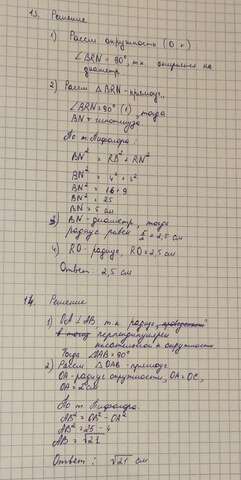 13. Решение
1) Рассм окружность (O r)
∠BRN = 90°, т.к. опирается на
диаметр
2) Рассм △BRN - прямоуг.
∠BRN = 90° (1), тогда
BN = гипотенуза
По т. Пифагора:
BN² = RB² + RN²
BN² = 4² + 3²
BN² = 16 + 9
BN² = 25
BN = 5 см
3) BN - диаметр, тогда
радиус равен 5/2 = 2,5 см
4) RO - радиус, RO = 2,5 см
Ответ: 2,5 см
14. Решение
1) OA ⊥ AB т.к. радиус
перпендикулярен
касательной к окружности
Тогда ∠OAB = 90°
2) Рассм △OAB - прямоуг.
OA - радиус окружности, OA = OC,
OA = 2 см
По т. Пифагора:
AB² = OB² - OA²
AB² = 25 - 4
AB = √21
Ответ: √21 см